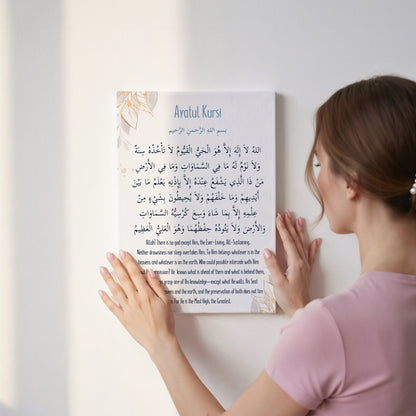 Ayatul Kursi
بِسْمِ اللهِ الرَّحْمٰنِ الرَّحِيْمِ
اَللهُ لَآ إِلٰهَ إِلَّا هُوَ الْحَيُّ الْقَيُّومُ لَا تَأْخُذُهُ سِنَةٌ
وَلَا نَوْمٌ لَهُ مَا فِي السَّمَاوَاتِ وَمَا فِي الْأَرْضِ
مَنْ ذَا الَّذِي يَشْفَعُ عِنْدَهُ إِلَّا بِإِذْنِهِ يَعْلَمُ مَا بَيْنَ
أَيْدِيهِمْ وَمَا خَلْفَهُمْ وَلَا يُحِيطُونَ بِشَيْءٍ مِنْ
عِلْمِهِ إِلَّا بِمَا شَاءَ وَسِعَ كُرْسِيُّهُ السَّمَاوَاتِ
وَالْأَرْضَ وَلَا يَئُودُهُ حِفْظُهُمَا وَهُوَ الْعَلِيُّ الْعَظِيمُ
Allah! There is no god except Him, the Ever-Living, All-Sustaining.
Neither drowsiness nor sleep overtakes Him. To Him belongs whatever is in the
heavens and whatever is on the earth. Who could possibly intercede with Him
permission? He knows what is ahead of them and what is behind them,
grasp any of His knowledge—except what He wills. His Seat
heavens and the earth, and the preservation of both does not tire
For He is the Most High, the Greatest.